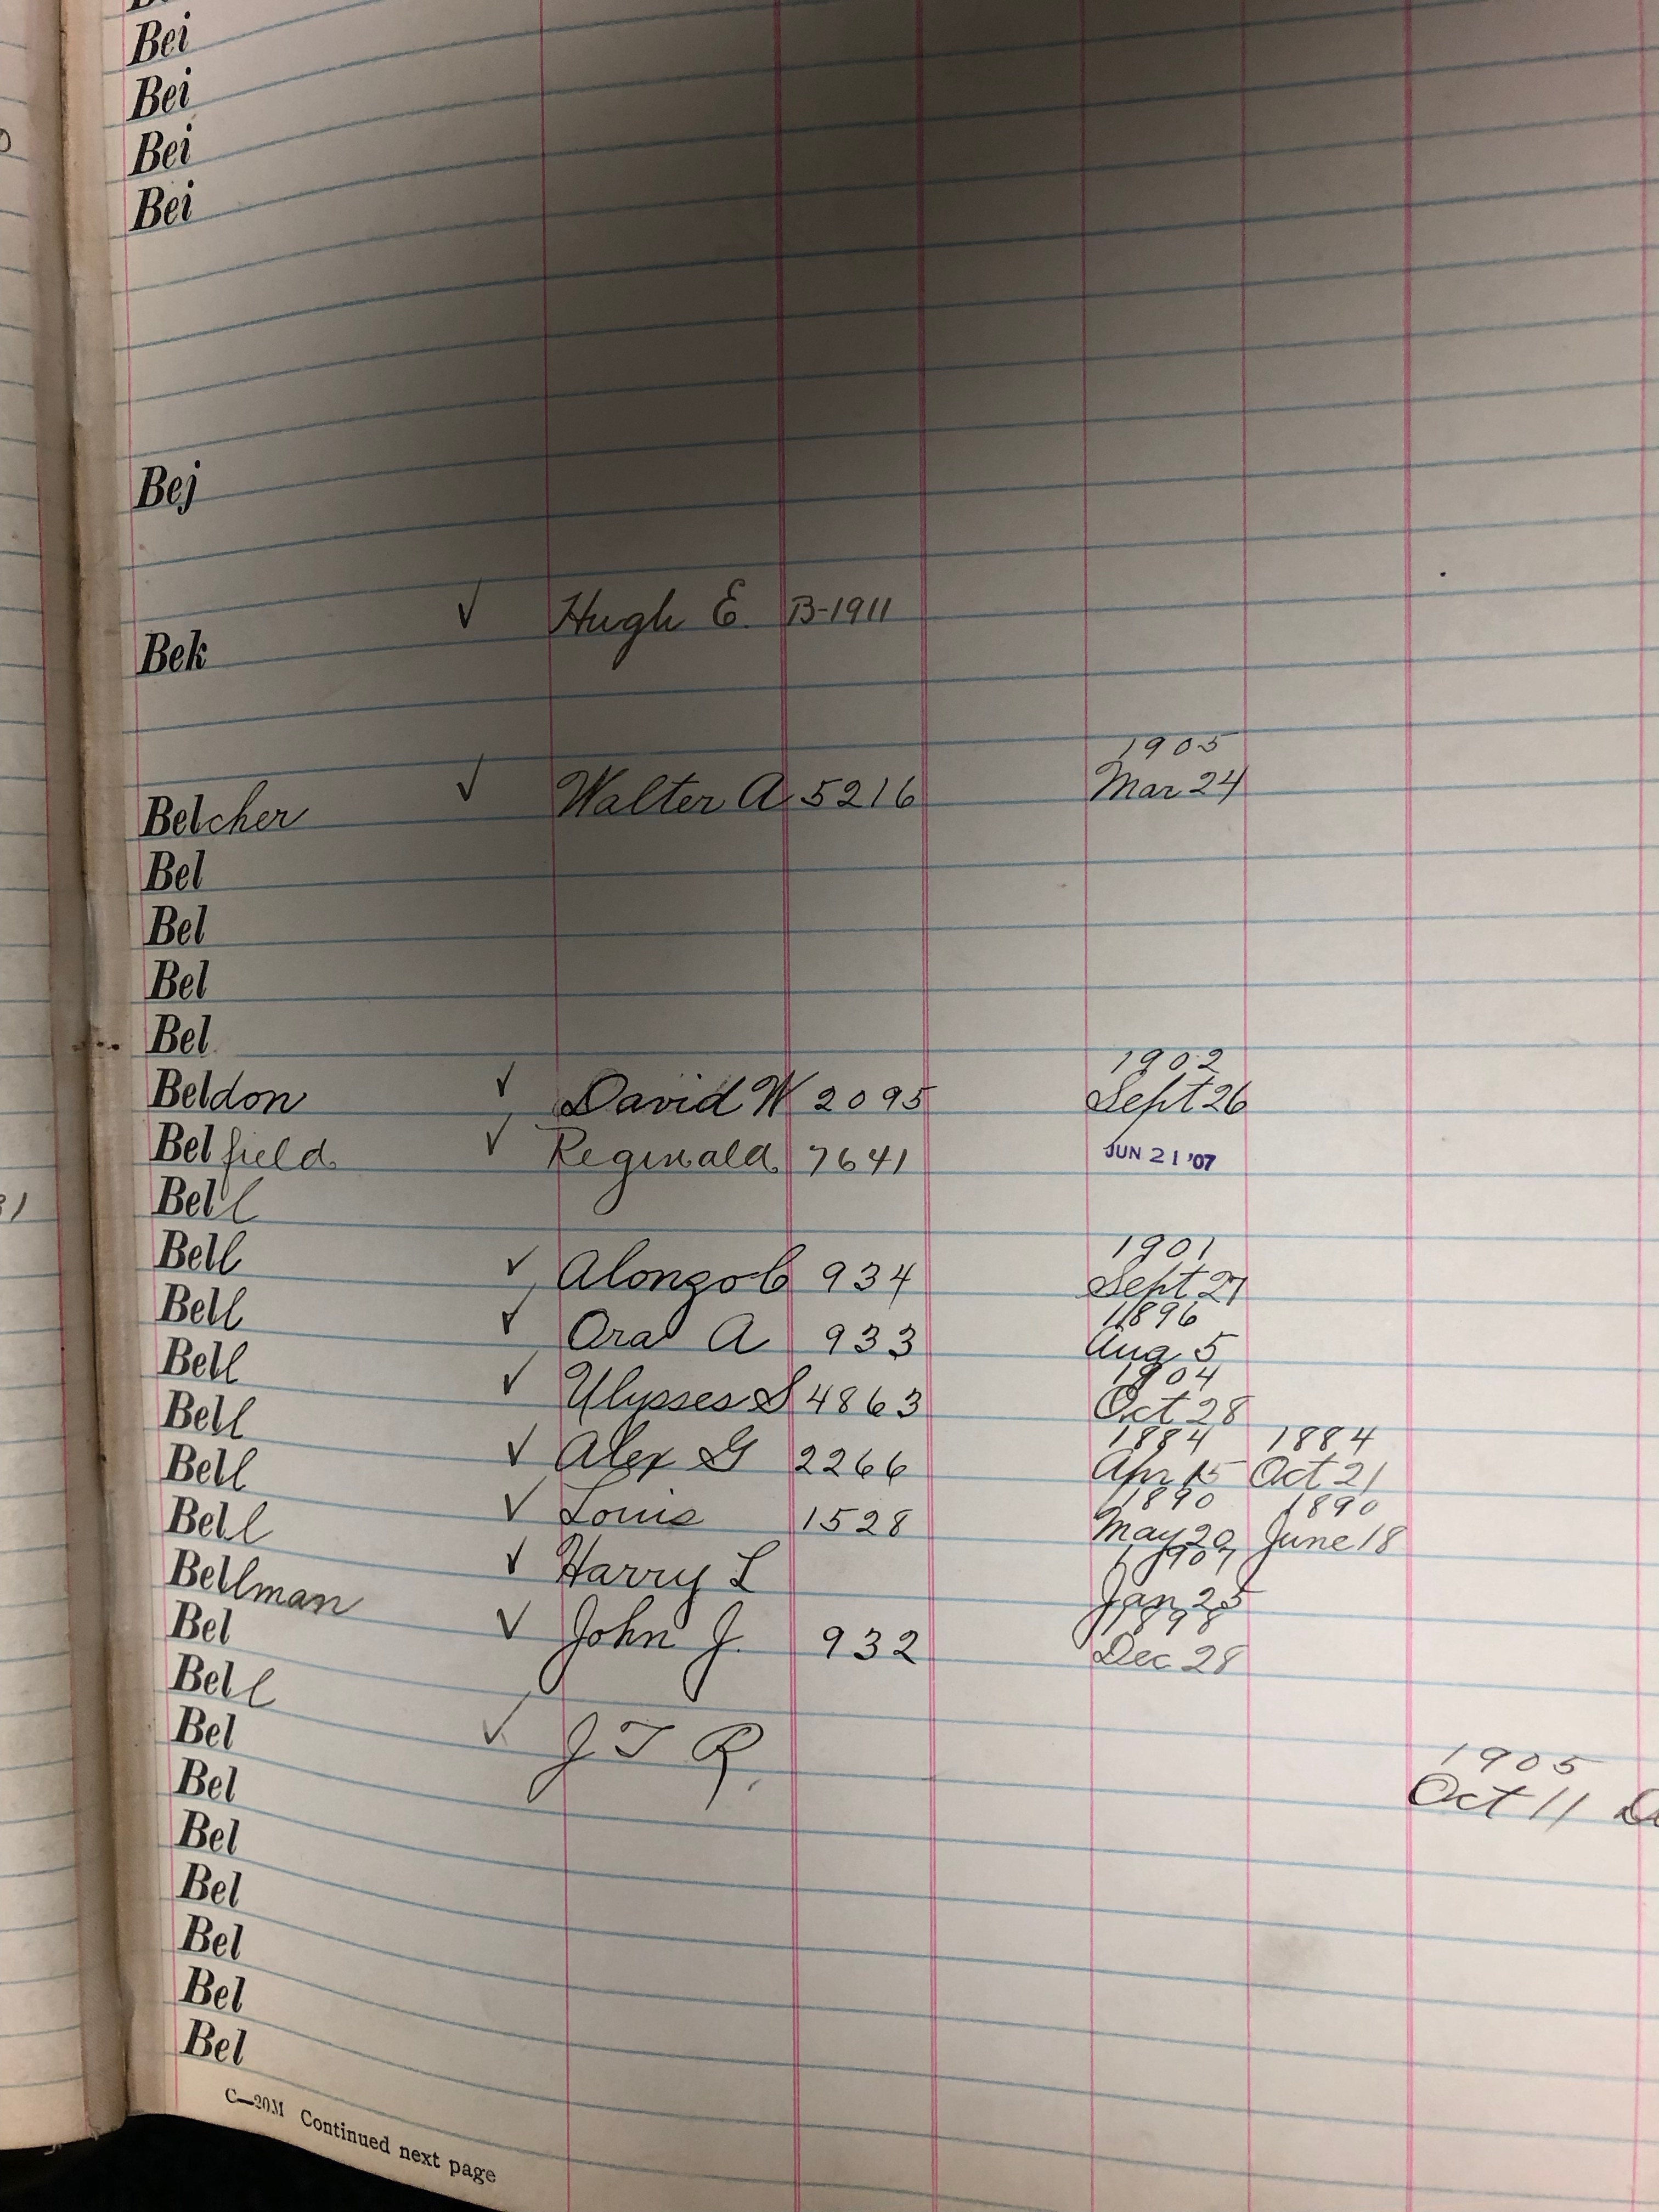 Bei
Bei
Bei
Bei
Bej
Hugh E. B-1911
Bek
1905
Belcher ✓ Walter A 5216 Mar 24
Bel
Bel
Bel
Bel
1902
Beldon ✓ David W 2095 Sept 26
Belfield ✓ Reginald 7641 JUN 21 '07
Bell
1901
Bell ✓ Alonzo C 934 Sept 27
1896
Bell ✓ Ora A 933 Aug 5
1904
Bell ✓ Ulysses S 4863 Oct 28
1884 1884
Bell ✓ Alex G 2266 Apr 15 Oct 21
1890 1890
Bell ✓ Louis 1528 May 20 June 18
1907
Bell ✓ Harry L Jan 25
1898
Bellman ✓ John J. 932 Dec 28
Bel
Bell ✓ J T R.
1905
Bel Oct 11
Bel
Bel
Bel
Bel
Bel
Bel
C—20M Continued next page